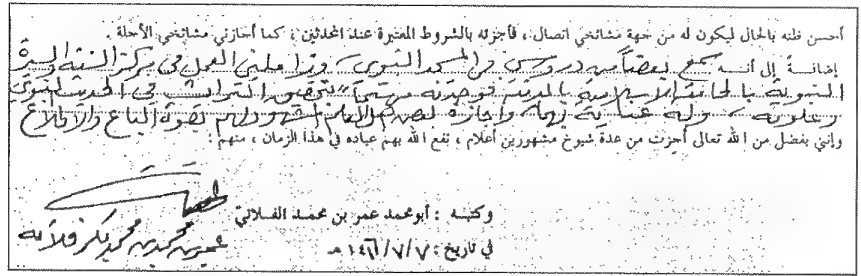 أحسن ظنه بالحال ليكون له من جهة مشائخي اتصال ، فأجزته بالشروط المعتبرة عند المحدثين ، كما أجازني مشائخي الأجلة .
إضافةً إلى أنه سمع بعضاً من دروسي في المسجد النبوي ، وزاملني العمل في مركز السنة والسيرة
النبوية بالجامعة الإسلامية بالمدينة فوجدته مهتماً بتحقيق التراث في الحديث النبوي
وعلومه ، وله عناية بهما وإجازة لبعض الأعلام المشهود لهم بقوة الباع والاطلاع
وإنني بفضل من الله تعالى أجزت من عدة شيوخ مشهورين أعلام ، نفع الله بهم عباده في هذا الزمان ، منهم :
وكتبه : أبو محمد عمر بن محمد الفلاني
عمر بن محمد بن محمد بكر فلاته
في تاريخ : ١٤٦/٧/٧ هـ